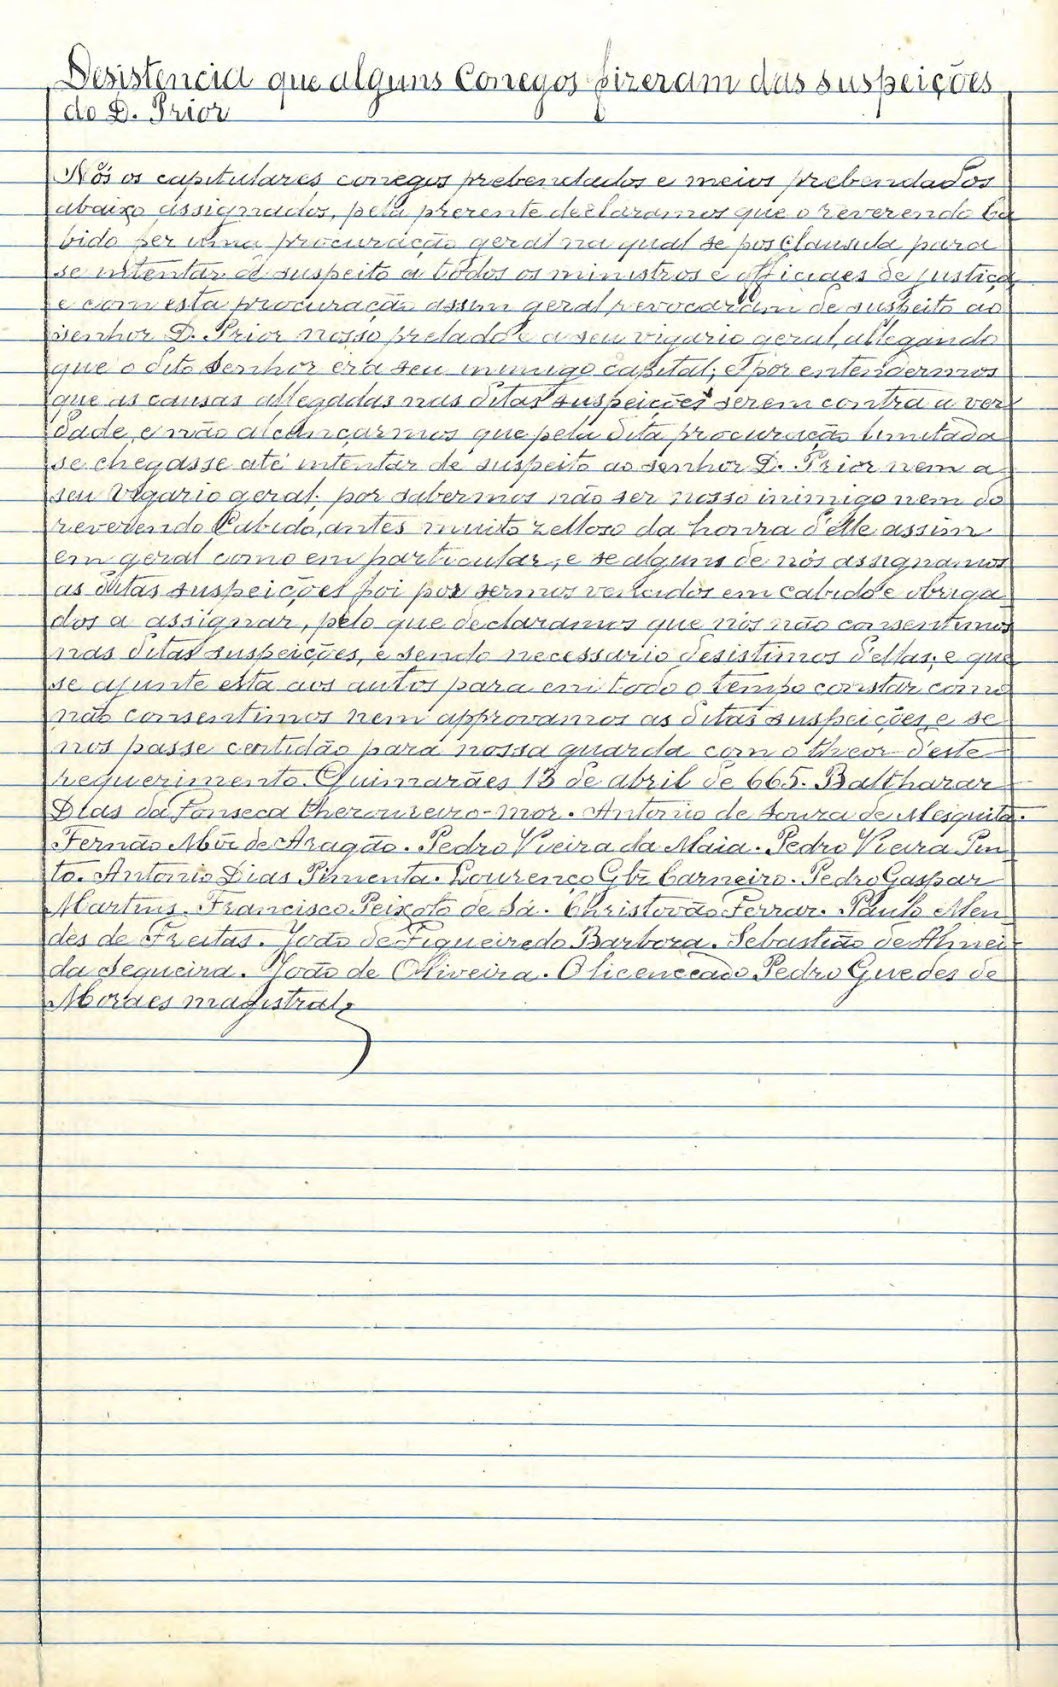 Desistencia que alguns Conegos fizeram das suspeições
do D. Prior
Nós os capitulares conegos prebendados e meios prebendados
abaixo assignados, pela prezente declaramos que o reverendo Ca
bido fez uma procuração geral na qual se pos clausula para
se intentar de suspeito a todos os ministros e officiaes de justiça,
e com esta procuração assim geral revocaram de suspeito ao
senhor D. Prior nosso prelado e a seu vigario geral, allegando
que o dito senhor era seu inimigo capital; e por entendermos
que as causas allegadas nas ditas suspeições serem contra a ver
dade, e não alcançarmos que pela dita procuração limitada
se chegasse até intentar de suspeito ao senhor D. Prior nem a
seu vigario geral; por sabermos não ser nosso inimigo nem do
reverendo Cabido, antes muito zelloso da honra d'elle assim
em geral como em particular, e se alguns de nós assignamos
as ditas suspeições foi por sermos vencidos em cabido e obriga
dos a assignar, pelo que declaramos que nós não consentimos
nas ditas suspeições, e sendo necessario desistimos d'ellas; e que
se ajunte esta aos autos para em todo o tempo constar como
não consentimos nem approvamos as ditas suspeições, e se
nos passe certidão para nossa guarda com o theor d'este
requerimento. Guimarães 13 de abril de 665. Balthazar
Dias da Fonseca thezoureiro-mor. Antonio de Souza de Mesquita.
Fernão Môr de Aragão. Pedro Vieira da Maia. Pedro Vieira Pin
to. Antonio Dias Pimenta. Lourenço Glz Carneiro. Pedro Gaspar
Martins. Francisco Peixoto de Sá. Christovão Ferraz. Paulo Men
des de Freitas. João de Figueiredo Barboza. Sebastião de Almei
da Sequeira. João de Oliveira. O licenceado Pedro Guedes de
Moraes magistral,